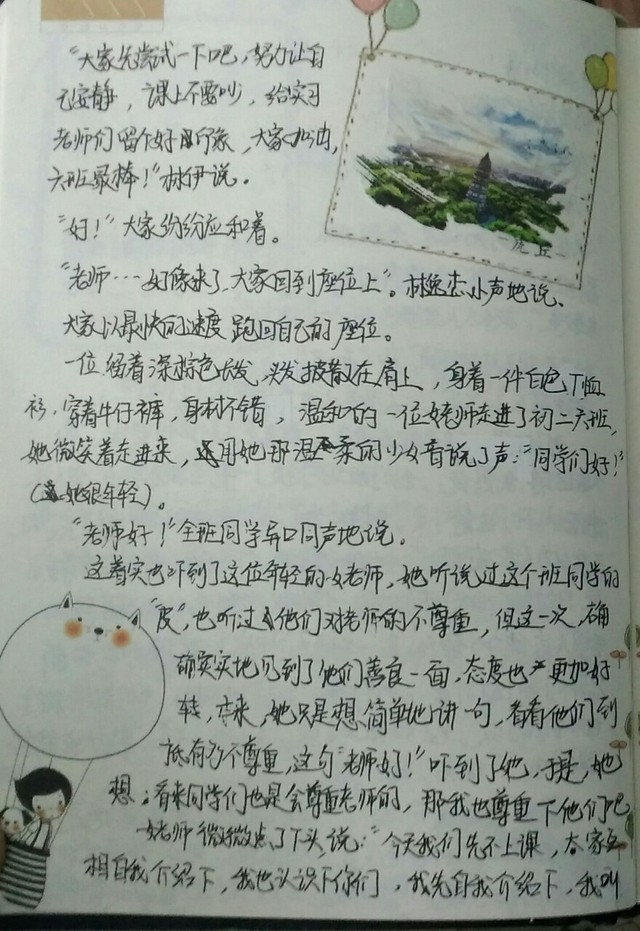 “大家先尝试一下吧，努力让自
己安静，课上不要吵，给实习
老师们留个好印象，大家加油，
六班最棒！”林伊说。
“好！”大家纷纷应和着。
“老师…好像来了，大家回到座位上”。林逸杰小声地说、
大家以最快的速度跑回自己的座位。
一位留着深棕色长发，头发披散在肩上，身着一件白色T恤
衫，穿着牛仔裤，身材不错，温和的一位女老师走进了初二六班，
她微笑着走进来，还用她那温柔的少女音说了声：“同学们好！”
（她很年轻）。
“老师好！”全班同学异口同声地说。
这着实也吓到了这位年轻的女老师，她听说过这个班同学的
“皮”，也听过他们对老师的不尊重，但这一次，确
确实实地见到了他们善良一面，态度也更加好
转，本来，她只是想简单地讲一句，看看他们到
底有多不尊重，这句“老师好！”吓到了她，于是，她
想：看来同学们也是会尊重老师的，那我也尊重下他们吧
女老师微微点了下头，说：“今天我们先不上课，大家互
相自我介绍下，我也认识下你们，我先自我介绍下，我叫
虎丘